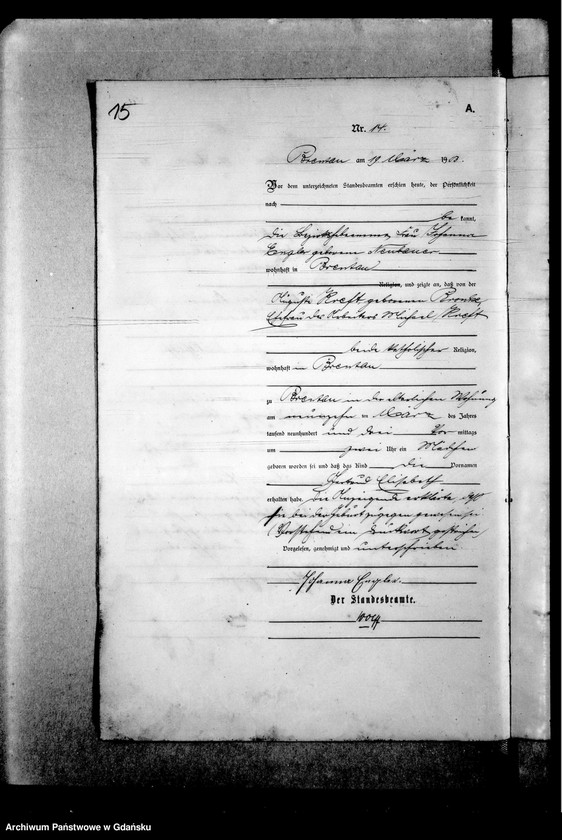 15
A.
Nr. 14.
Brentau am 19 März 1903.
Vor dem unterzeichneten Standesbeamten erschien heute, der Persönlichkeit
nach
be kannt,
die Bezirkshebamme Frau Johanna
Engler geborene
wohnhaft in Brentau
Religion, und zeigte an, daß von der
Auguste Kreft geborenen
Ehefrau des Arbeiters Michael Kreft
beide katholischer Religion,
wohnhaft in Brentau
zu Brentau in der elterlichen Wohnung
am neunzehn ten März des Jahres
tausend neunhundert und drei Vor mittags
um zwei Uhr ein Mädchen
geboren worden sei und daß das Kind die Vornamen
Gertrud Elisabeth
erhalten habe. Die Anzeigende erklärte, daß
sie bei der Geburt zugegen gewesen sei
Vorstehend ein Druckwort gestrichen
Vorgelesen, genehmigt und unterschrieben
Johanna Engler.
Der Standesbeamte.
Archiwum Państwowe w Gdańsku